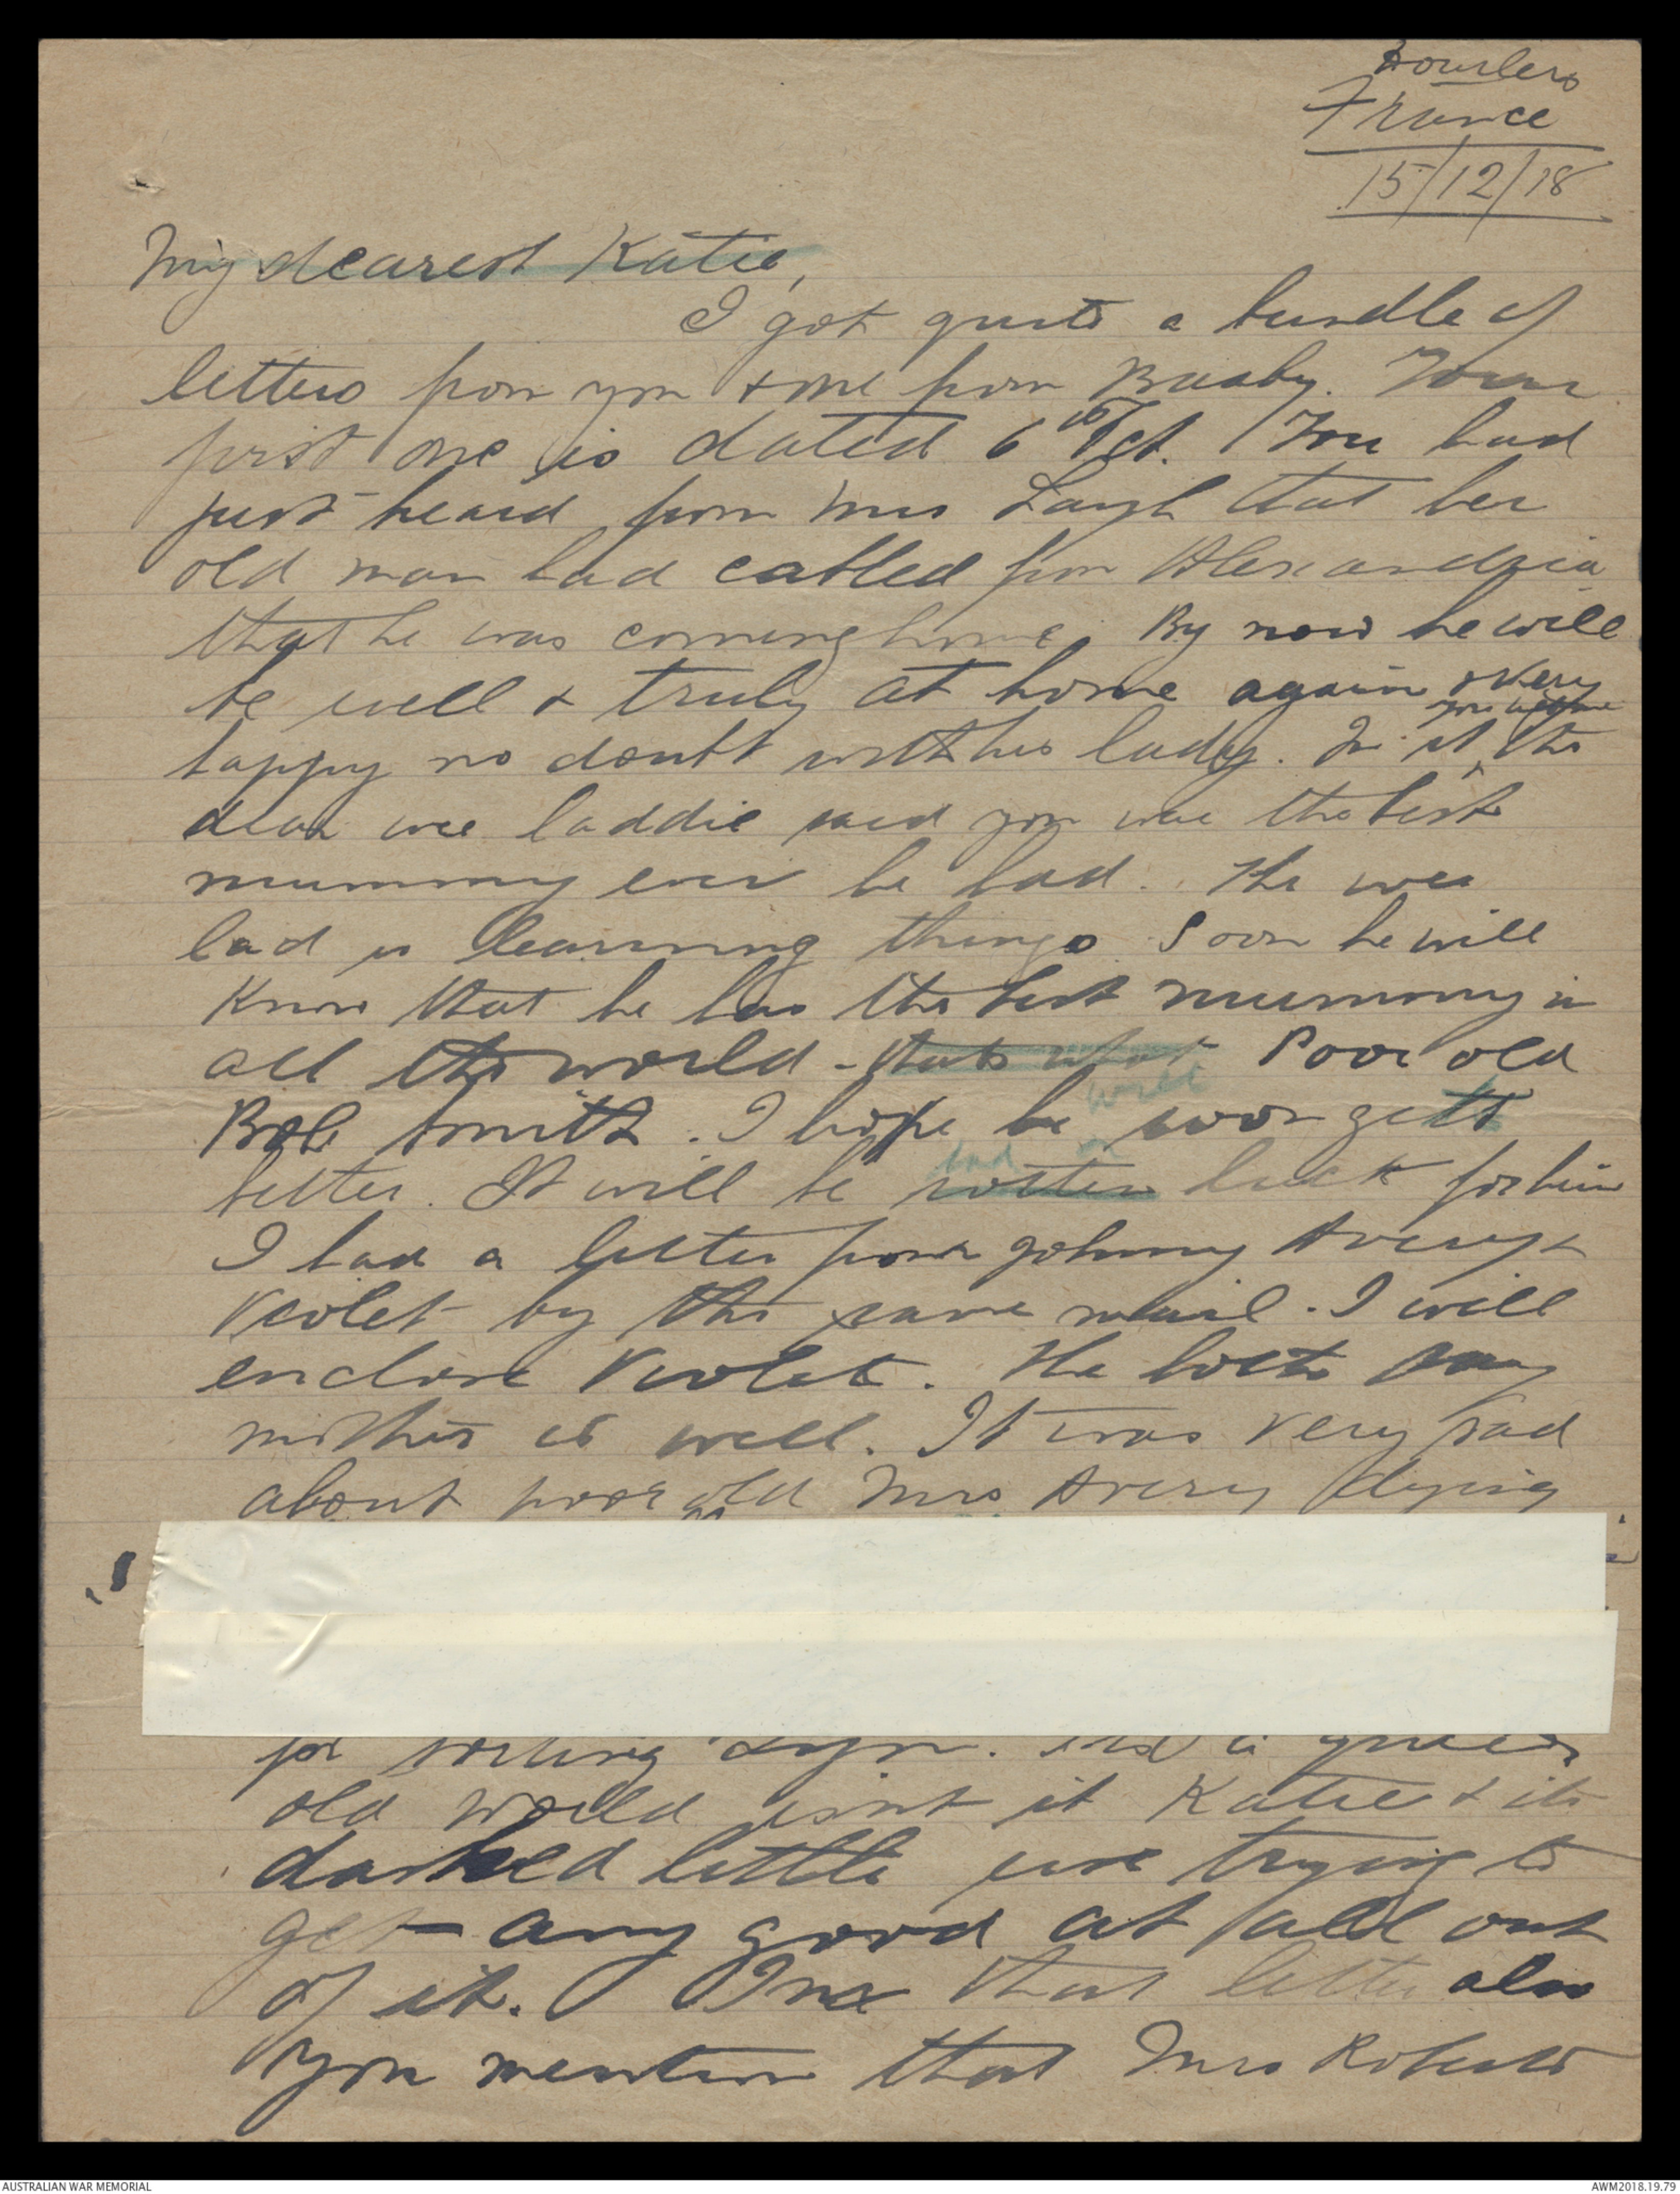 France
15/12/18
My dearest Katie,
I got quite a bundle of
letters from you & one from Busby. Your
first one is dated 6th Oct. You had
just heard from Mrs Laugh that her
old man had cabled from Alexandria
that he was coming home. By now he will
be well & truly at home again & very
happy no doubt with his lady. In it you the
dear wee laddie said you were the best
mummy ever he had. The wee
lad is learning things. Soon he will
know that he has the best mummy in
all the world - thats what Poor old
Bob Smith. I hope he will soon gets
better. It will be bad rotten luck for him
I had a letter from Johnny Avery &
Violet by the same mail. I will
enclose Violets. He loets my
mother is well. It was very sad
about poor old Mrs Avery dying
for
old world isnt it Katie & its
dashed little use trying to
get any good at all out
of it. In that letter also
you mention that Mrs Roberts
AUSTRALIAN WAR MEMORIAL
AWM2018.19.79